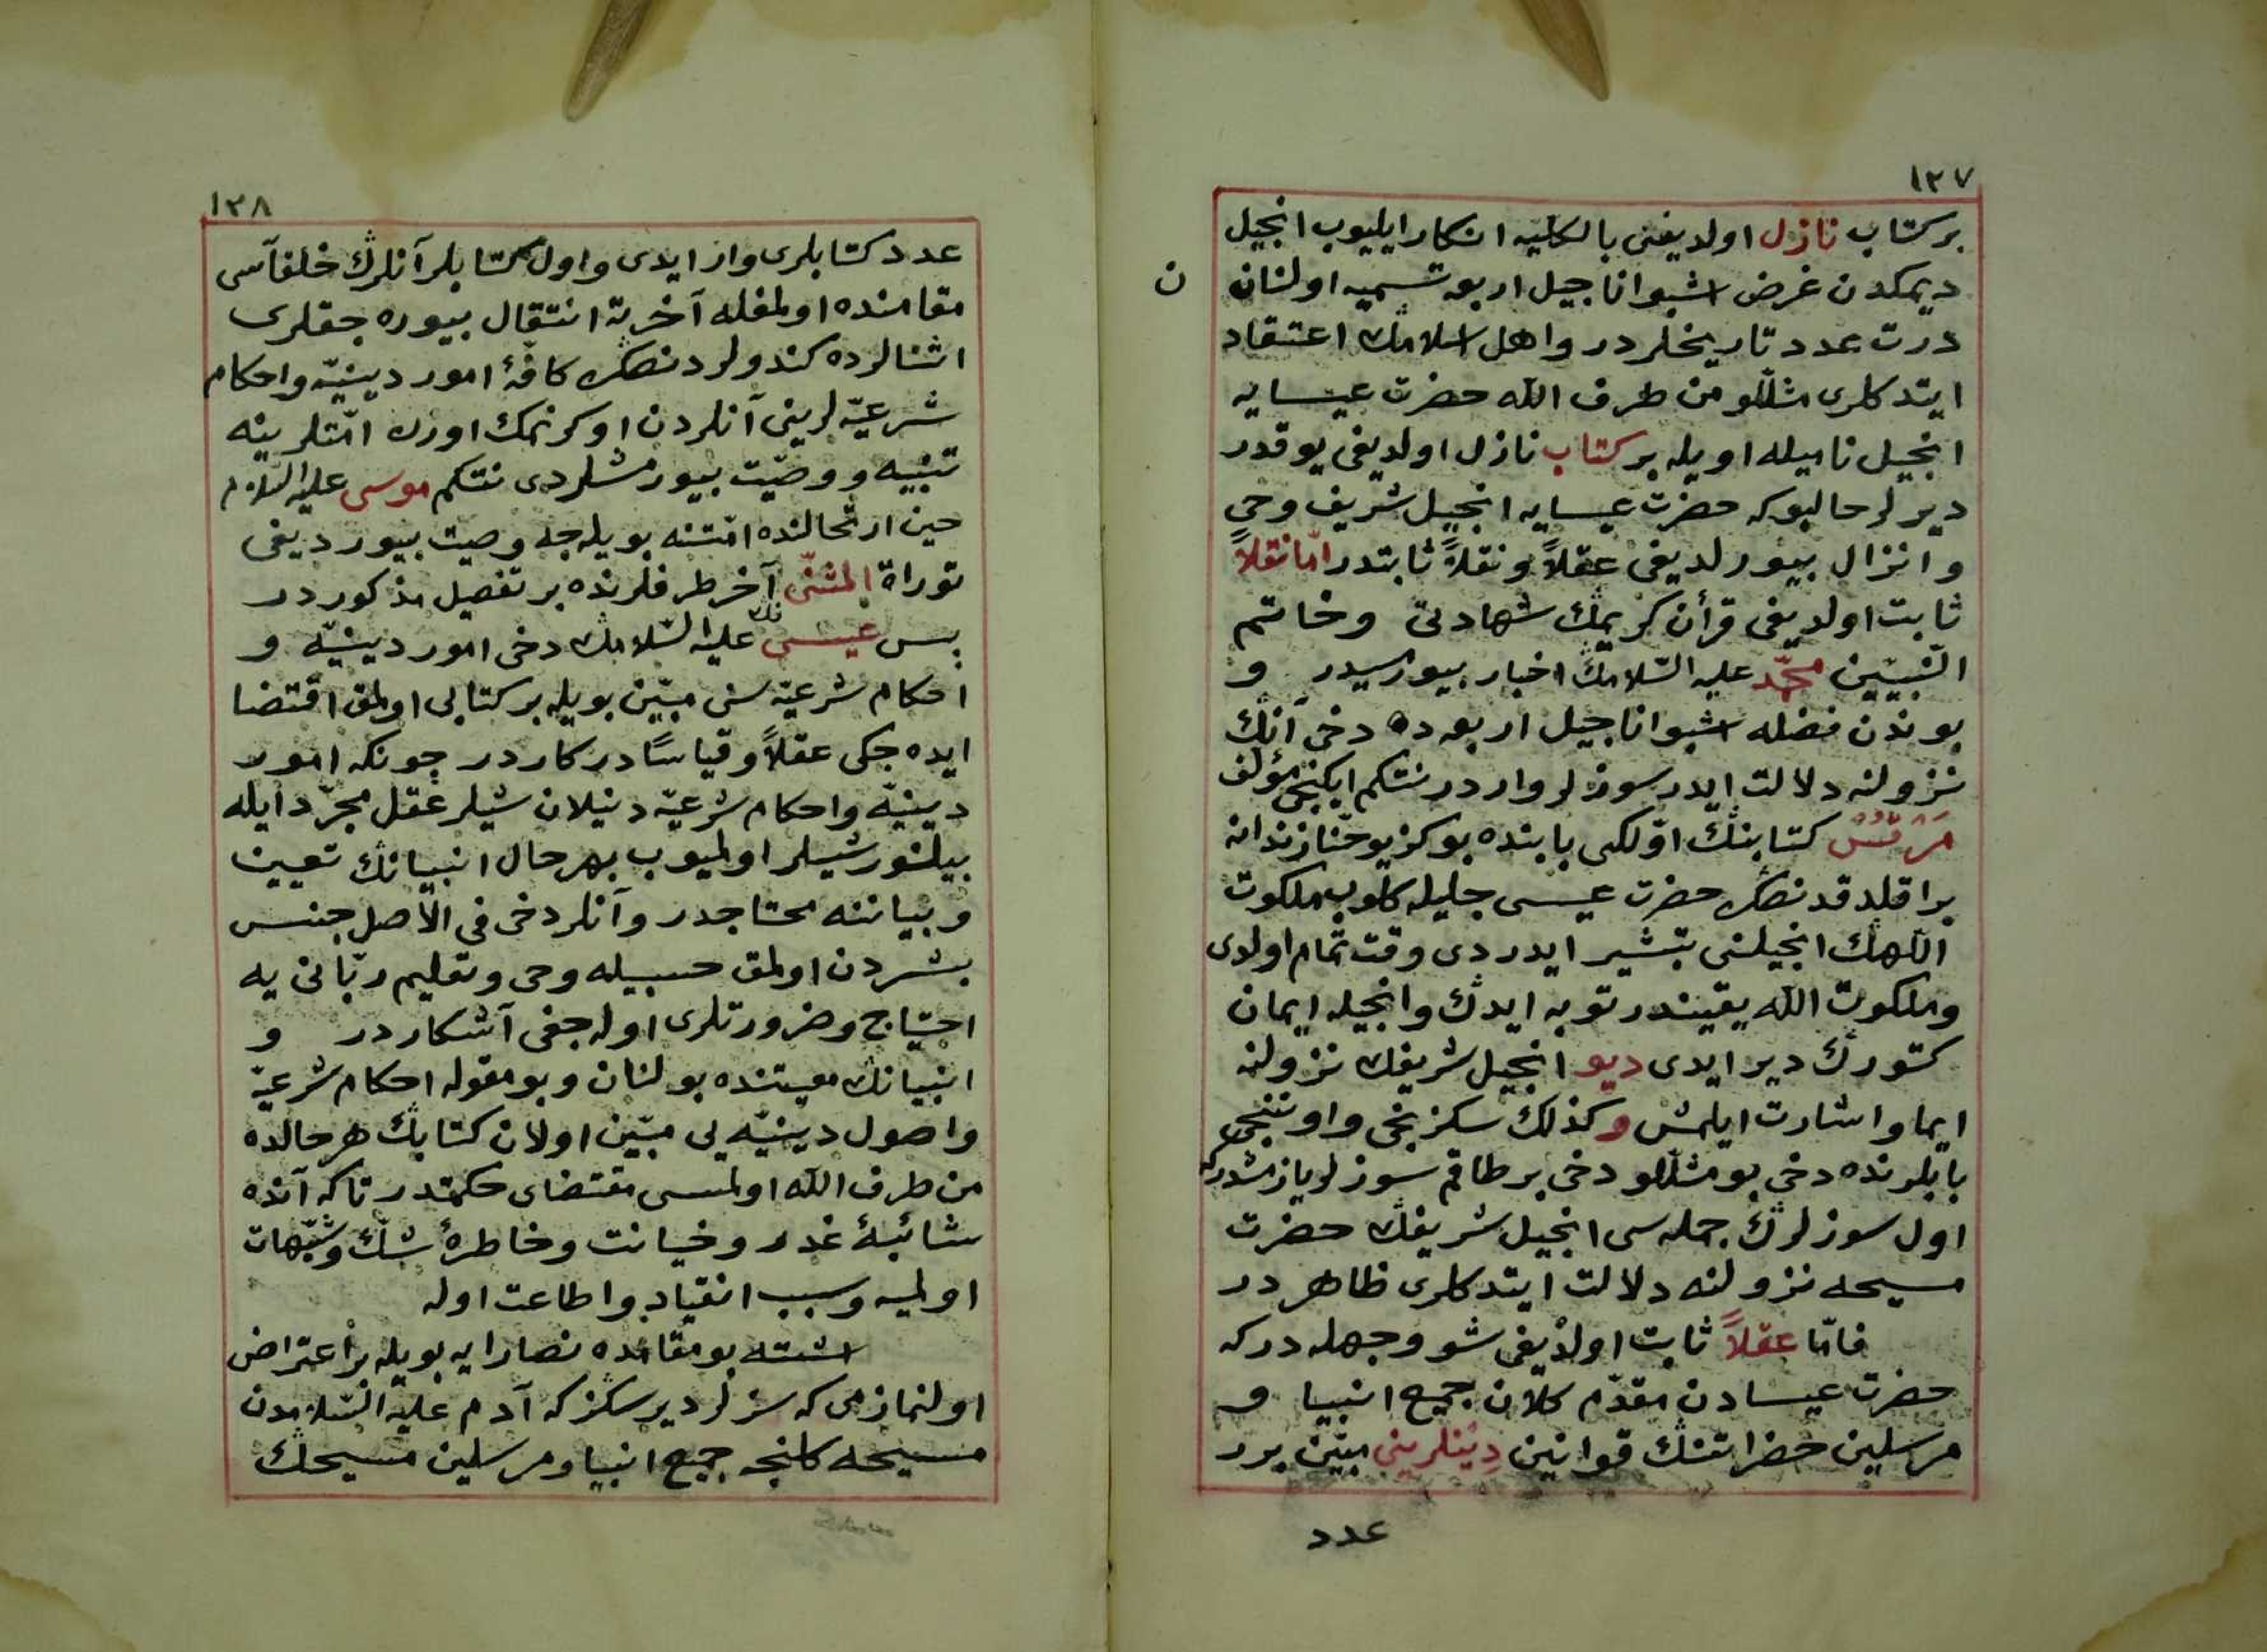 ١٢٧
بر كتاب نازل اولديغنى بالكليه انكار ايليوب انجيل
ديمكدن غرض اشبو اناجيل اربعه تسميه اولنان
ن
درت عدد تاريخلردر و اهل اسلامك اعتقاد
ايتدكلرى مثللو من طرف الله حضرت عيسايه
انجيل ناميله اويله بر كتاب نازل اولديغى يوقدر
ديرلر حالبوكه حضرت عيسايه انجيل شريف وحى
و انزال بيورلديغى عقلاً و نقلاً ثابتدر امّا نقلاً
ثابت اولديغى قرأن كريمڭ شهادتى وخاتم
النّبيّين محمّد عليه السّلامڭ اخبار بيورمسيدر و
بوندن فضله اشبو اناجيل اربعه ده دخى آنڭ
نزولنه دلالت ايدر سوزلر واردر نتكم ايكنجى مؤلف
مَرقُسْ كتابنڭ اوّلكى بابنده بوكز يوحنّا زندانه
براقلدقدنصكره حضرت عيسى جليله كلوب ملكوت
اللهڭ انجيلنى تبشير ايدردى وقت تمام اولدى
وملكوت الله يقيندر توبه ايدڭ وانجيله ايمان
كتورڭ دير ايدى ديو انجيل شريفك نزولنه
ايما و اشارت ايلمش وكذلك سكزنجى و اوننجى
بابلرنده دخى بو مثللو دخى بر طاقم سوزلر يازمشدركه
اول سوزلرڭ جمله سى انجيل شريفك حضرت
مسيحه نزولنه دلالت ايتدكلرى ظاهردر
فامّا عقلاً ثابت اولديغى شو وجهله دركه
حضرت عيسادن مقدّم كلان جميع انبيا و
مرسلين حضراتنڭ قوانين دينلرينى مبيّن برر
عدد
١٢٨
عدد كتابلرى وار ايدى واول كتابلر آنلرڭ خلفآسى
مقامنده اولمغله آخرته انتقال بيوره جقلرى
اثنالرده كندولردنصكره كافۀ امور دينيّه واحكام
شرعيّه لرينى آنلردن اوكرنمك اوزره امّتلرينه
تنبيه و وصيّت بيورمشلردى نتكم موسى عليه السّلام
حين ارتحالنده امّتنه بويله جه وصيت بيورديغى
توراة المثنّى نك آخر طرفلرنده بر تفصيل مذكوردر
بس عيسى عليه السّلامك دخى امور دينيّه و
احكام شرعيّه سنى مبيّن بويله بر كتابى اولمق اقتضا
ايده جكى عقلاً و قياسًا دركاردر چونكه امور
دينيّه واحكام شرعيّه دنيلان شيلر عقل مجرّد ايله
بيلنور شيلر اولميوب بهرحال انبيانڭ تعيين
و بياننه محتاجدر وآنلر دخى فى الاصل جنس
بشردن اولمق حسبيله وحى وتعليم ربّانى يه
احتياج وضرورتلرى اوله جغى آشكاردر و
انبيانك معيتنده بولنان و بو مقوله احكام شرعيّه
واصول دينيّه يى مبيّن اولان كتابڭ هر حالده
من طرف الله اولمسى مقتضاى حكمتدر تا كه آنده
شائبۀ غدر و خيانت وخاطرۀ شكّ وشبهات
اولميه و سبب انقياد و اطاعت اوله
اشته بو مقامده نصارايه بويله بر اعتراض
اولنمازمى كه سزلر ديرسكز كه آدم عليه السّلامدن
مسيحه كلنجه جميع انبيا و مرسلين مسيحڭ